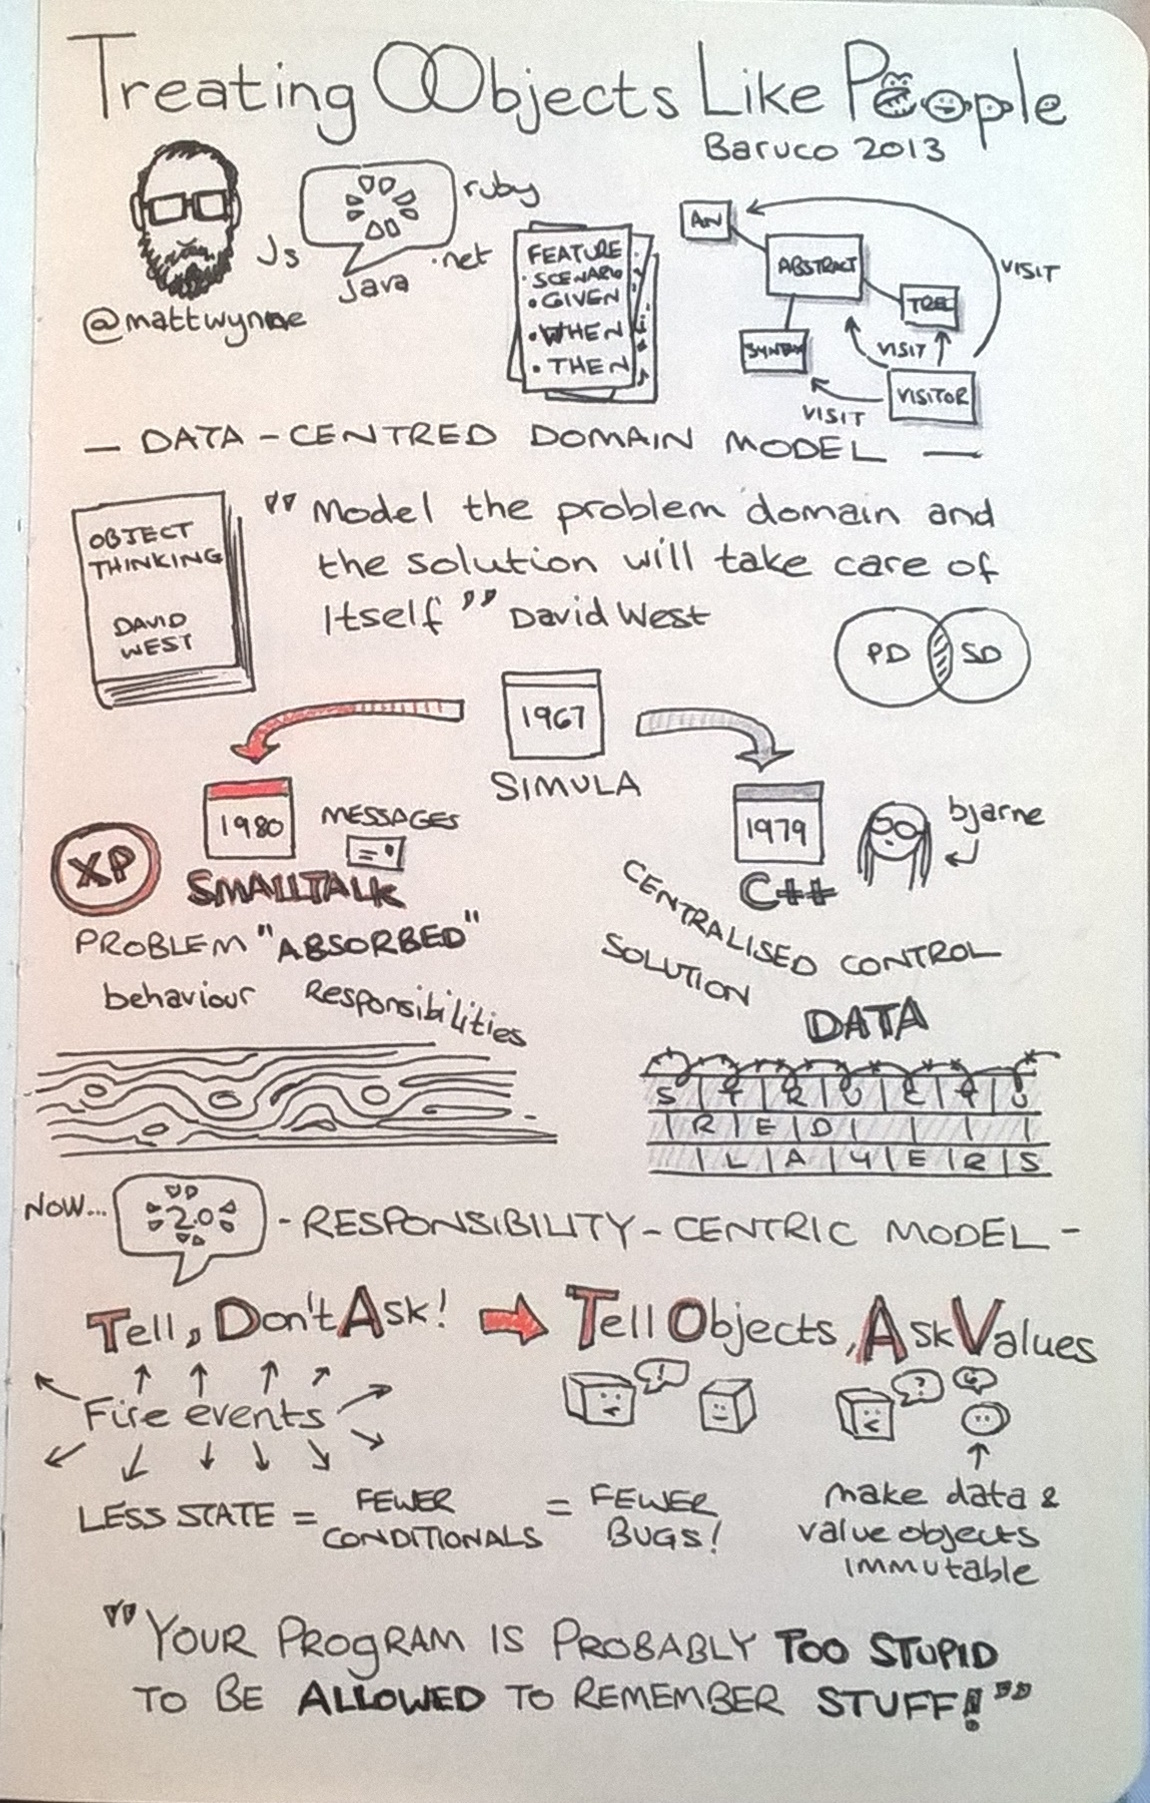 Treating OObjects Like People
Baruco 2013
ruby
Js
.net
Java
@mattwynne
FEATURE
• SCENARIO
• GIVEN
• WHEN
• THEN
AN
ABSTRACT
SYNTAX
TREE
VISITOR
VISIT
VISIT
VISIT
— DATA-CENTRED DOMAIN MODEL —
OBJECT
THINKING
DAVID
WEST
"Model the problem domain and
the solution will take care of
Itself" David West
PD SD
1967
SIMULA
1980
MESSAGES
XP
SMALLTALK
PROBLEM "ABSORBED"
behaviour Responsibilities
1979
bjarne
C++
CENTRALISED CONTROL
SOLUTION
DATA
STRUCTU
RED
LAYERS
NOW...
2.0
- RESPONSIBILITY-CENTRIC MODEL -
Tell, Don't Ask!
Tell Objects, Ask Values
!
?
6
Fire events
LESS STATE = FEWER CONDITIONALS = FEWER BUGS!
make data &
value objects
immutable
"YOUR PROGRAM IS PROBABLY TOO STUPID
TO BE ALLOWED TO REMEMBER STUFF!"